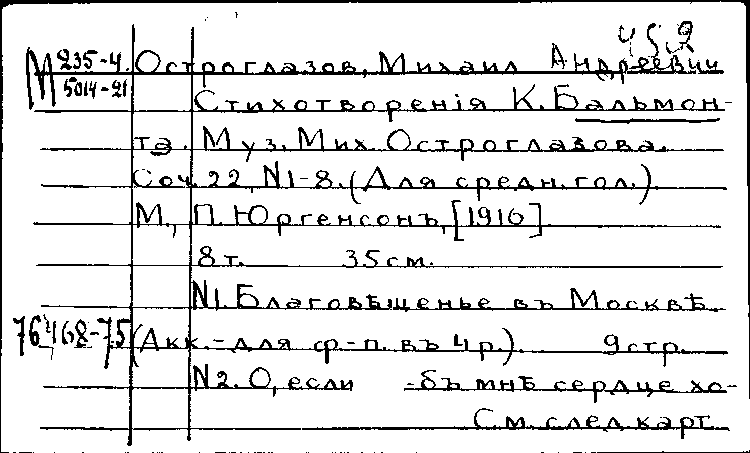 452
М 235-4
5014-21
Остроглазов, Михаил Андреевич
Стихотворенія К. Бальмон-
та. Муз. Мих. Остроглазова.
Соч. 22, N1-8. (Для средн. гол.).
М., П. Юргенсонъ, [1910]
8 т. 35 см.
N1. Благовѣщенье въ Москвѣ.
76468-75 (Акк.-для ф-п. въ 4 р.). 9 стр.
N2. О, если -бъ мнѣ сердце хо-
См. след. карт.